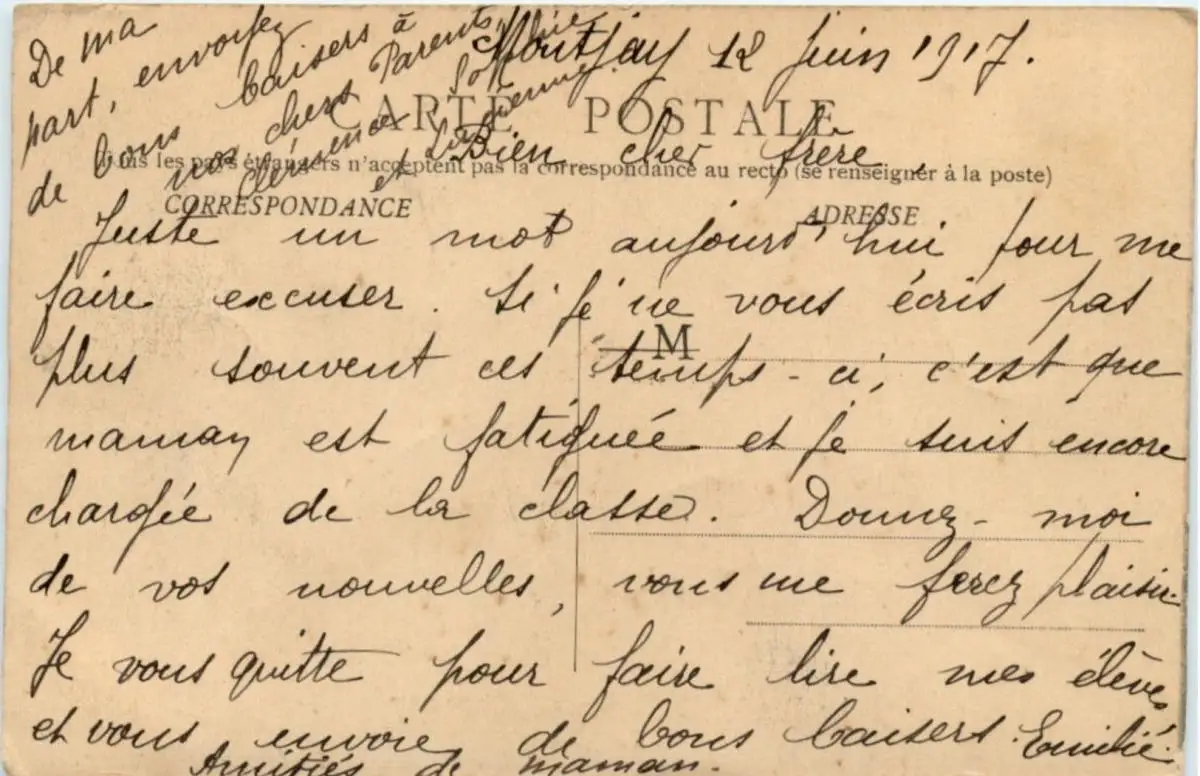 De ma
part, envoyez
de bons baisers à
nos chers Parents,
Clémence
et
Montjay 12 Juin 1917.
CARTE POSTALE
Bien cher frère,
Tous les pays étrangers n'acceptent pas la correspondance au recto (se renseigner à la poste)
CORRESPONDANCE
ADRESSE
Juste un mot aujourd'hui pour me
faire excuser. Si je ne vous écris pas
M
plus souvent ces temps-ci, c'est que
maman est fatiguée et je suis encore
chargée de la classe. Donnez-moi
de vos nouvelles, vous me ferez plaisir.
Je vous quitte pour faire lire mes élèves
et vous envoie de bons baisers. Emilie.
Amitiés de maman.